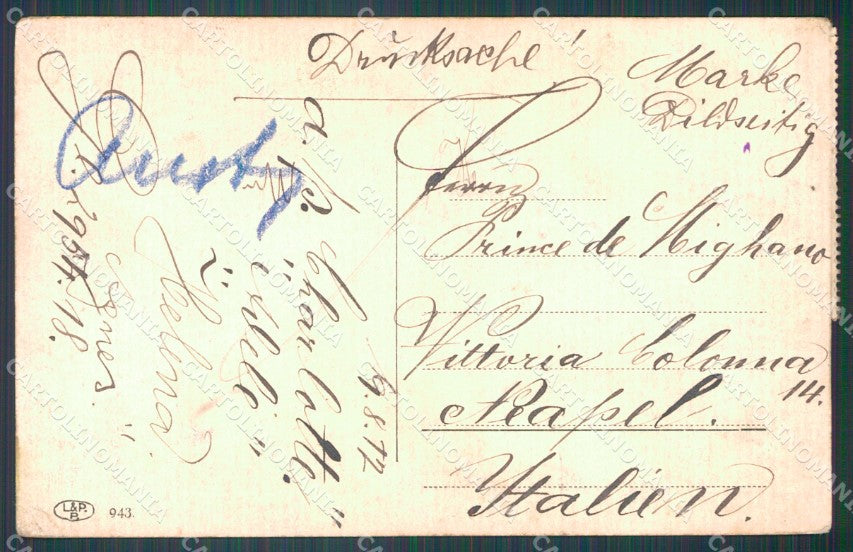 Drucksache!
Marke
Bildseitig
Herrn
Prince de Mighano
Vittoria Colonna
14.
Neapel.
Italien.
9.8.12
a. B. Charlotte "
" "
" Helma
" Agnes "
L&P.
B
943.
CARTOLINOMANIA